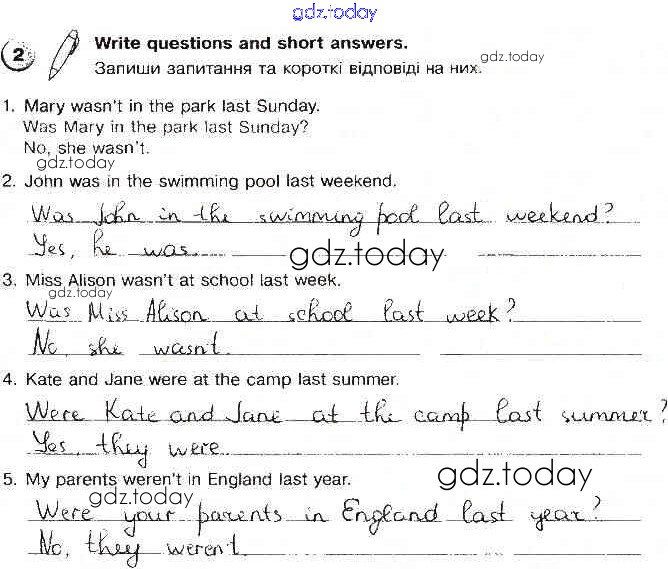 gdz.today
2 Write questions and short answers.
gdz.today
Запиши запитання та короткі відповіді на них.
1. Mary wasn't in the park last Sunday.
Was Mary in the park last Sunday?
No, she wasn't.
gdz.today
2. John was in the swimming pool last weekend.
Was John in the swimming pool last weekend?
Yes, he was.
gdz.today
3. Miss Alison wasn't at school last week.
gdz.today
Was Miss Alison at school last week?
No, she wasn't.
4. Kate and Jane were at the camp last summer.
Were Kate and Jane at the camp last summer?
Yes, they were.
5. My parents weren't in England last year.
gdz.today
gdz.today
Were your parents in England last year?
No, they weren't.